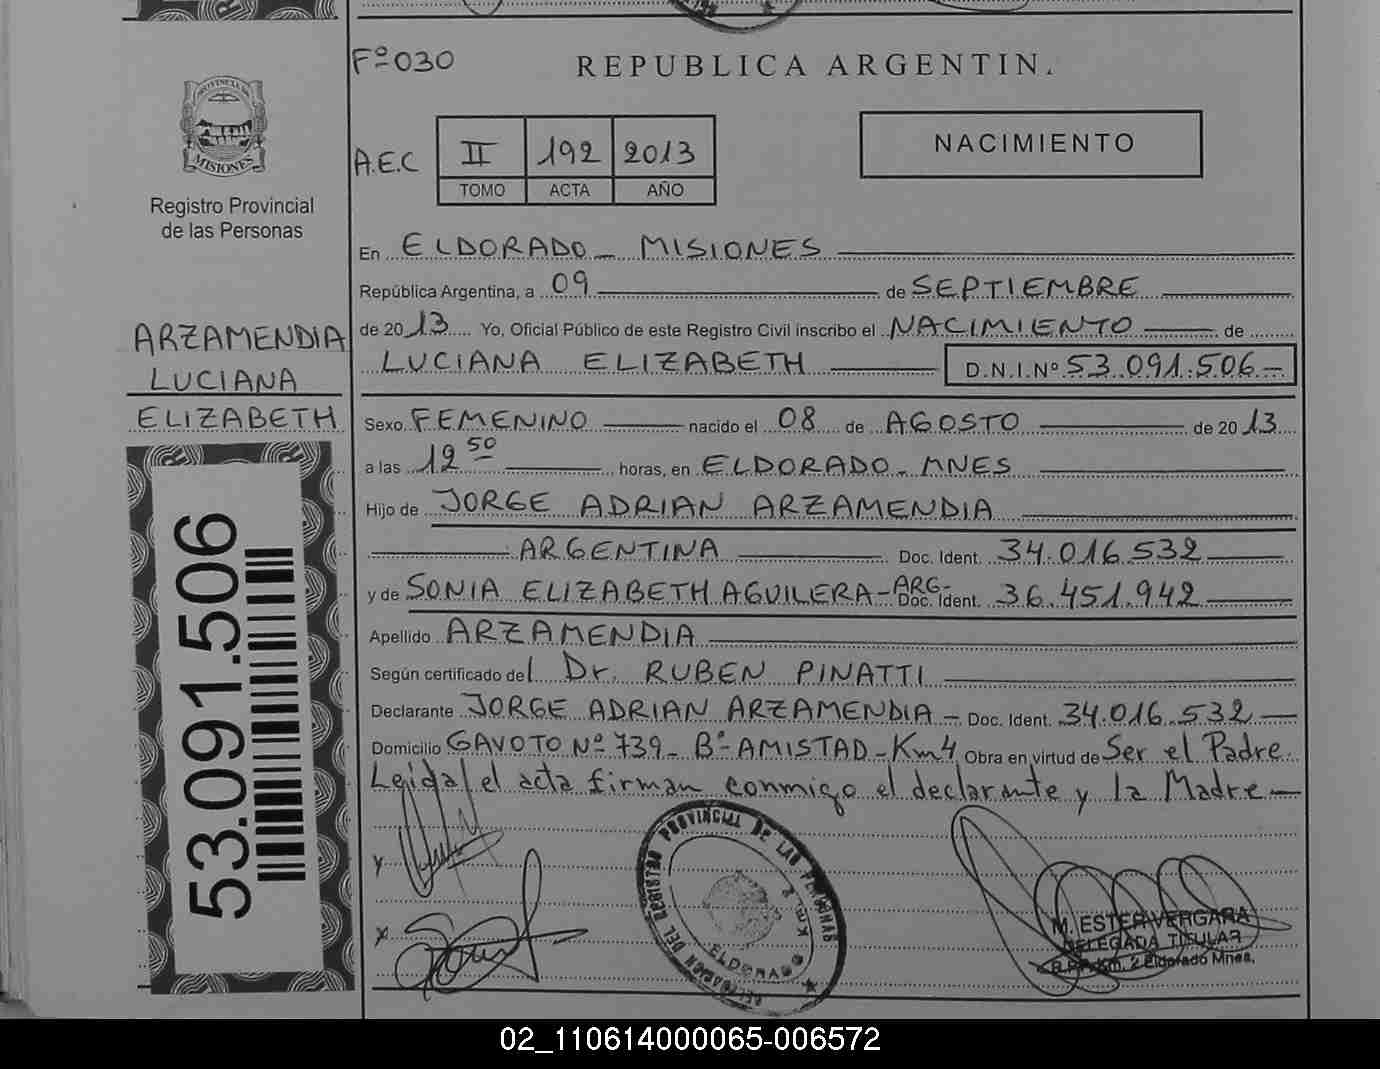 Fº 030
REPUBLICA ARGENTIN.
PROVINCIA DE
MISIONES
Registro Provincial
de las Personas
A.E.C II 192 2013
TOMO ACTA AÑO
NACIMIENTO
En ELDORADO - MISIONES
República Argentina, a 09 de SEPTIEMBRE
de 2013 Yo, Oficial Público de este Registro Civil inscribo el NACIMIENTO de
LUCIANA ELIZABETH D.N.I.Nº 53.091.506-
ARZAMENDIA
LUCIANA
ELIZABETH
Sexo FEMENINO nacido el 08 de AGOSTO de 2013
a las 12 50 horas, en ELDORADO - MNES
Hijo de JORGE ADRIAN ARZAMENDIA
ARGENTINA Doc. Ident. 34.016.532
y de SONIA ELIZABETH AGUILERA - ARG- Doc. Ident. 36.451.942
Apellido ARZAMENDIA
Según certificado del Dr. RUBEN PINATTI
Declarante JORGE ADRIAN ARZAMENDIA - Doc. Ident. 34.016.532
Domicilio GAVOTO Nº 739- Bº AMISTAD - Km 4 Obra en virtud de Ser el Padre.
Leída el acta firman conmigo el declarante y la Madre-
53.091.506
DEL REGISTRO PROVINCIAL DE LAS PERSONAS
Km. 2
ELDORADO
M. ESTER VERGARA
DELEGADA TITULAR
R.P.P. Km. 2 Eldorado Mnes.
02_110614000065-006572